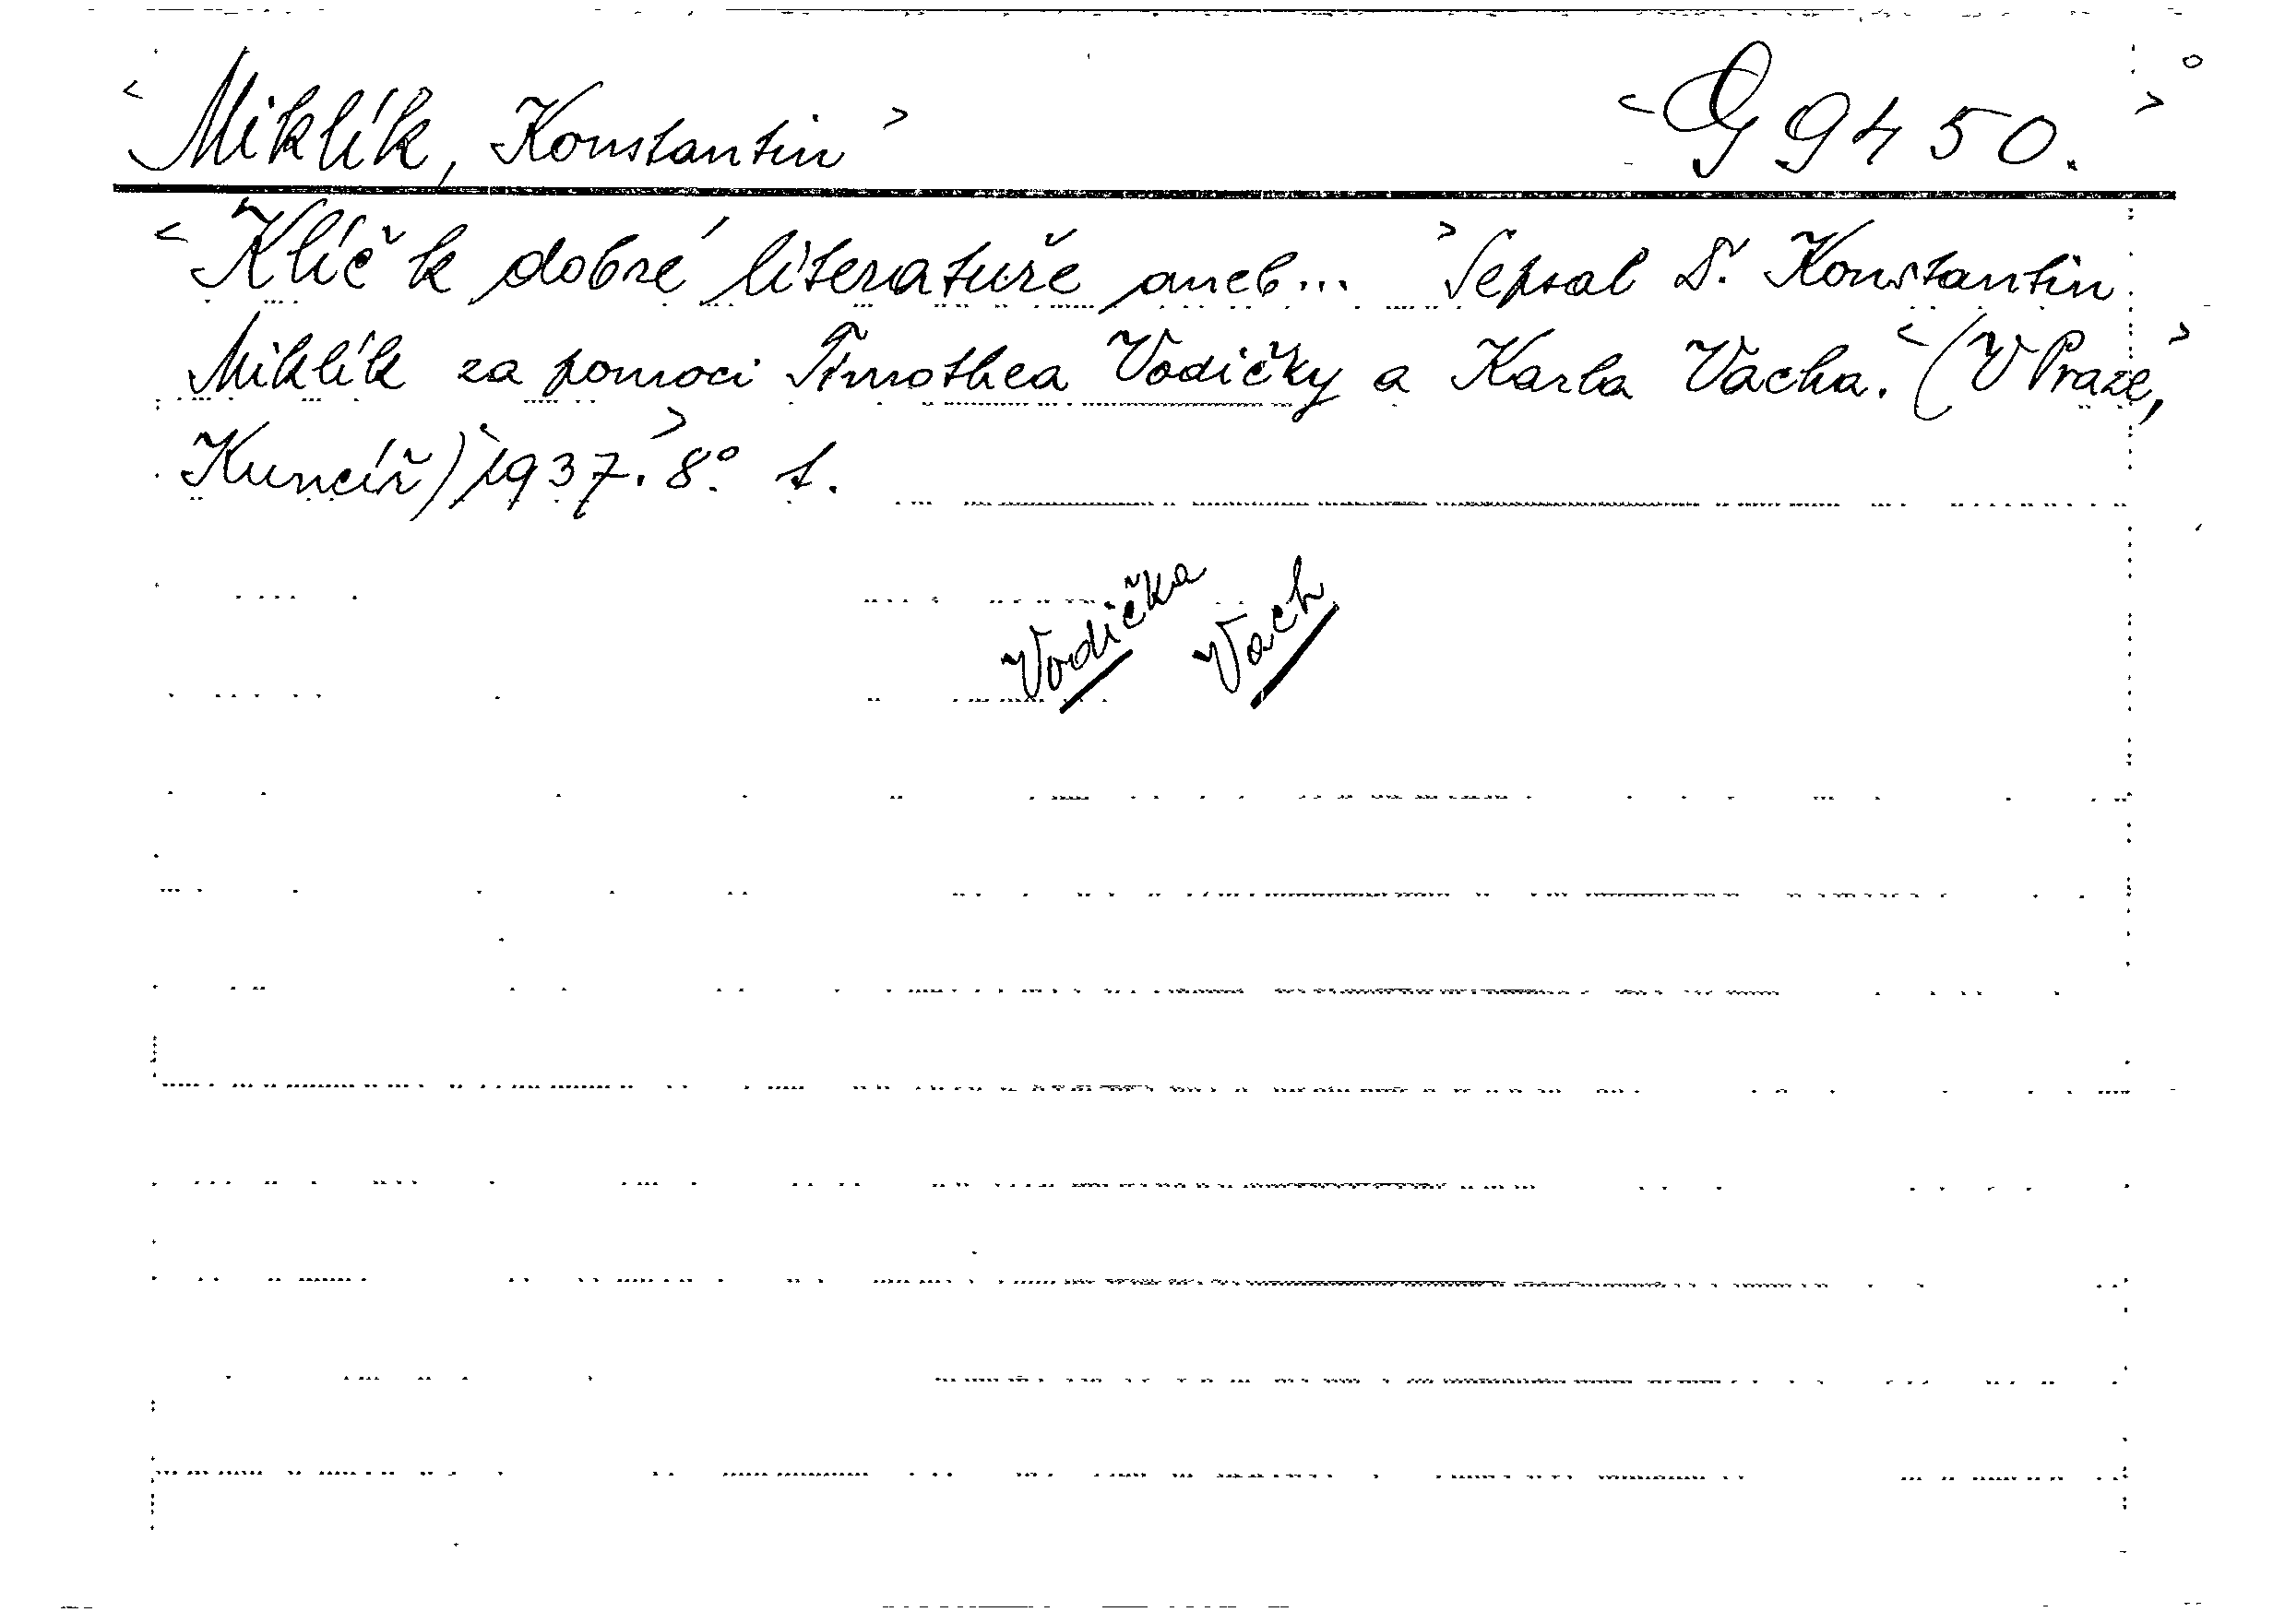 <Miklík, Konstantin> <G 9450.>
<Klíč k dobré literatuře aneb...> Sepsal Dr. Konstantin
Miklík za pomoci Timothea Vodičky a Karla Vacha. <(V Praze,>
Kuncíř) 1937.> 8°. s.
Vodička
Vach